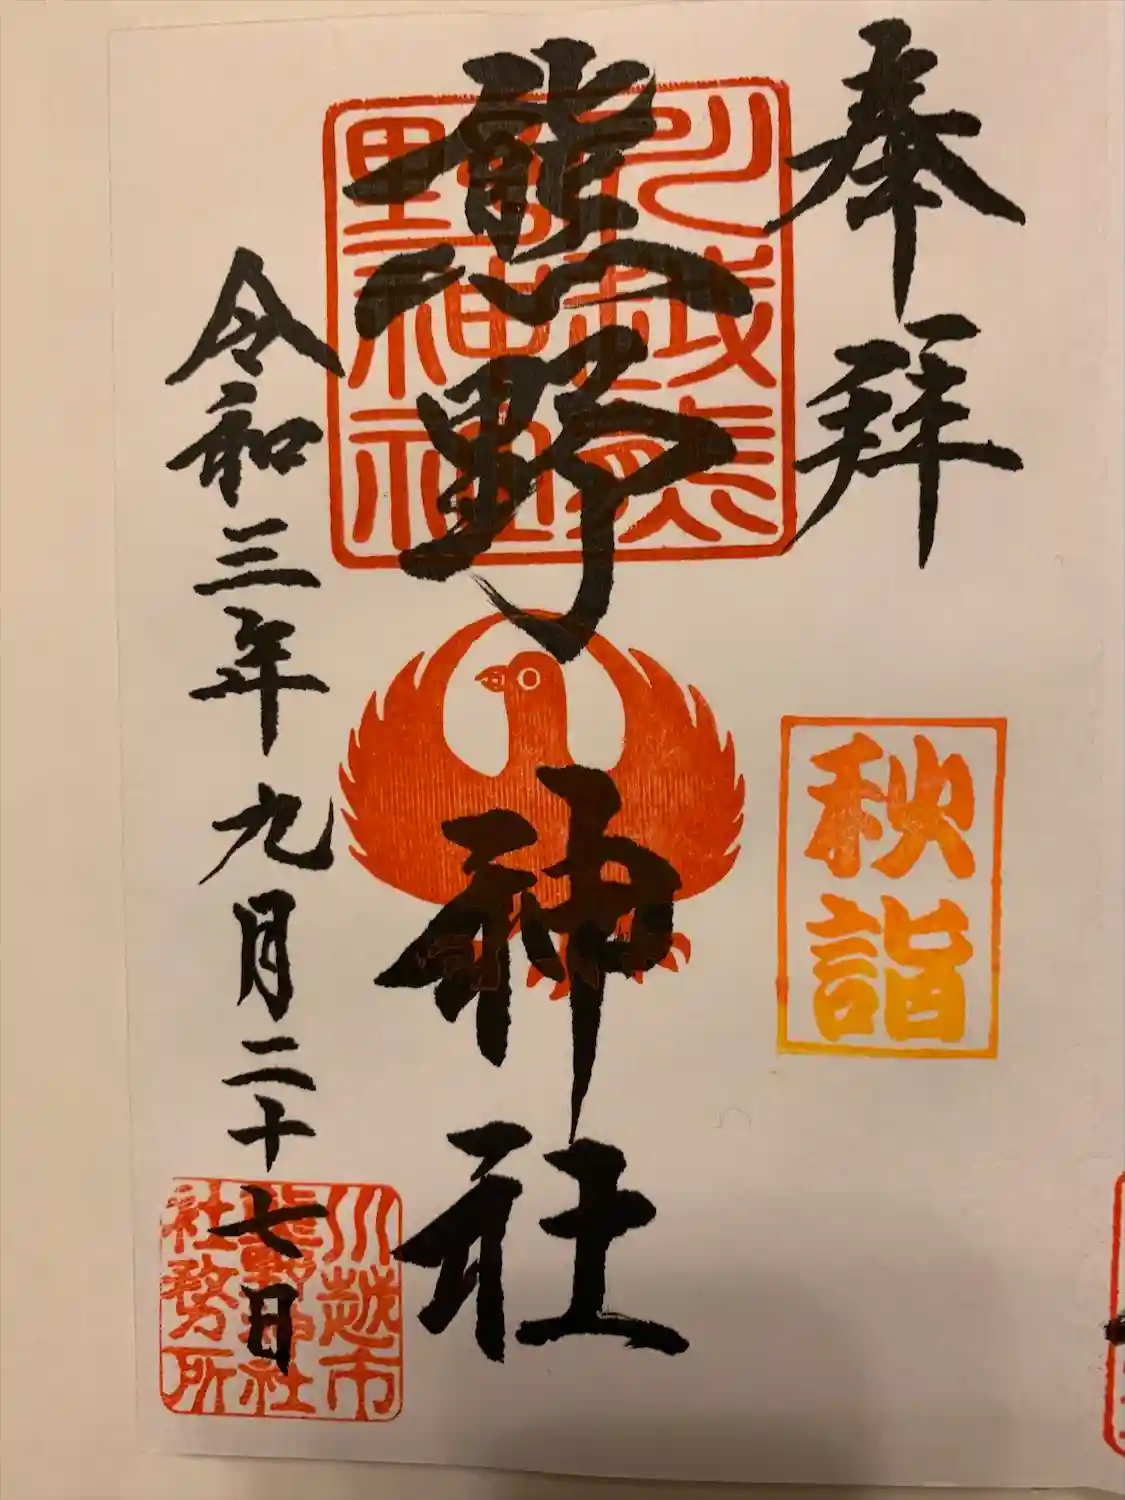 奉拝
秋詣
川越熊野神社
熊野神社
令和三年九月二十七日
川越市
熊野神社
社務所